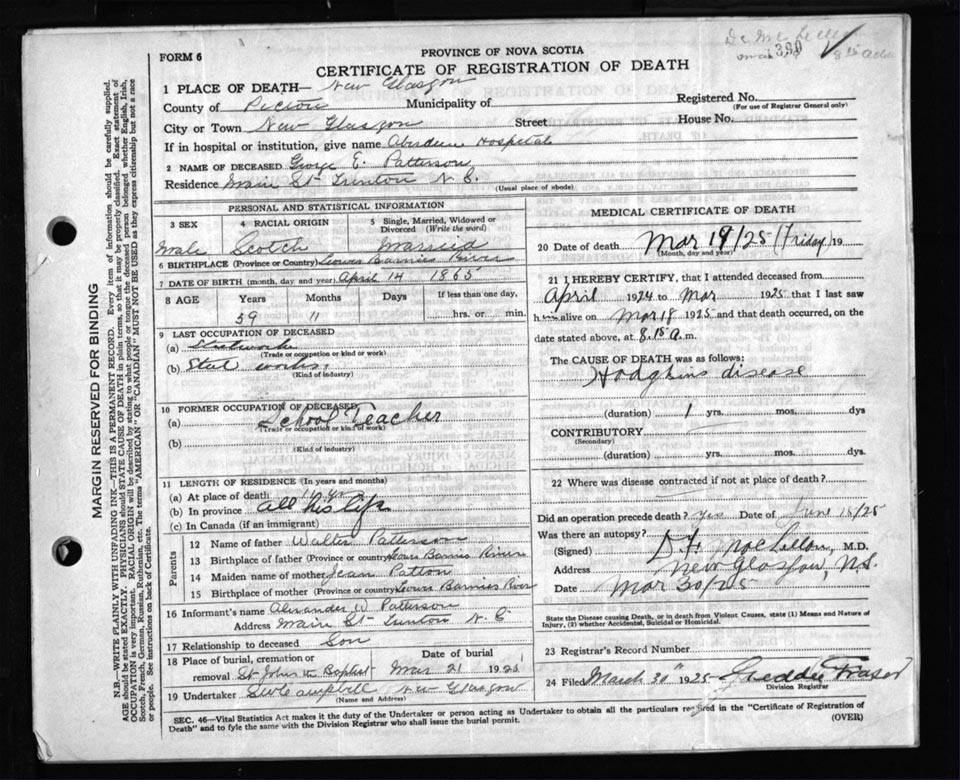 1390
FORM 6
PROVINCE OF NOVA SCOTIA
CERTIFICATE OF REGISTRATION OF DEATH
1 PLACE OF DEATH— New Glasgow
County of Pictou Municipality of Registered No.
(For use of Registrar General only)
City or Town New Glasgow Street House No.
If in hospital or institution, give name Aberdeen Hospital
2 NAME OF DECEASED George E. Patterson
Residence Main St Trenton N. S.
(Usual place of abode)
PERSONAL AND STATISTICAL INFORMATION
3 SEX 4 RACIAL ORIGIN 5 Single, Married, Widowed or Divorced (Write the word)
Male Scotch Married
6 BIRTHPLACE (Province or Country) Lower Barnies River
7 DATE OF BIRTH (month, day and year) April 14 1865
8 AGE Years Months Days If less than one day,
59 11 hrs. or min.
9 LAST OCCUPATION OF DECEASED
(a) Steelworks
(Trade or occupation or kind or work)
(b) Steel works
(Kind of industry)
10 FORMER OCCUPATION OF DECEASED
(a) School Teacher
(Trade or occupation or kind of work)
(b)
(Kind of industry)
11 LENGTH OF RESIDENCE (In years and months)
(a) At place of death
(b) In province all his life
(c) In Canada (if an immigrant)
Parents
12 Name of father Walter Patterson
13 Birthplace of father (Province or country) Lower Barnies River
14 Maiden name of mother Jean Patton
15 Birthplace of mother (Province or country) Lowers Barnies River
16 Informant's name Alexander W Patterson
Address Main St Trenton N. S
17 Relationship to deceased Son
18 Place of burial, cremation or removal St John the Baptist Date of burial Mar 21 1925
19 Undertaker Campbell New Glasgow
(Name and Address)
MEDICAL CERTIFICATE OF DEATH
20 Date of death Mar 19/25 (Friday) 19
(Month, day and year)
21 I HEREBY CERTIFY, that I attended deceased from
April 1924 to Mar 1925 that I last saw
him alive on Mar 18 1925 and that death occurred, on the
date stated above, at 8.15 a. m.
The CAUSE OF DEATH was as follows:
Hodgkins disease
(duration) 1 yrs. mos. dys
CONTRIBUTORY
(Secondary)
(duration) yrs. mos. dys.
22 Where was disease contracted if not at place of death?
Did an operation precede death? Yes Date of June /25
Was there an autopsy?
(Signed) M.D.
Address New Glasgow, N.S.
Date Mar 30/25
State the Disease causing Death, or in death from Violent Causes, state (1) Means and Nature of
Injury, (2) whether Accidental, Suicidal or Homicidal.
23 Registrar's Record Number
24 Filed March 30" 1925 Fraser
Division Registrar
SEC. 46—Vital Statistics Act makes it the duty of the Undertaker or person acting as Undertaker to obtain all the particulars required in the "Certificate of Registration of
Death" and to fyle the same with the Division Registrar who shall issue the burial permit. (OVER)
MARGIN RESERVED FOR BINDING
N.B.—WRITE PLAINLY WITH UNFADING INK—THIS IS A PERMANENT RECORD. Every item of information should be carefully supplied.
AGE should be stated EXACTLY. PHYSICIANS should STATE CAUSE OF DEATH in plain terms, so that it may be properly classified. Exact statement of
OCCUPATION is very important. RACIAL ORIGIN will be described by stating to what people or tongue the deceased person belonged whether English, Irish,
Scotch, French, German, Russian, Ruthenian, etc. The terms "AMERICAN" or "CANADIAN" MUST NOT BE USED as they express citizenship but not a race
or people. See instructions on back of Certificate.